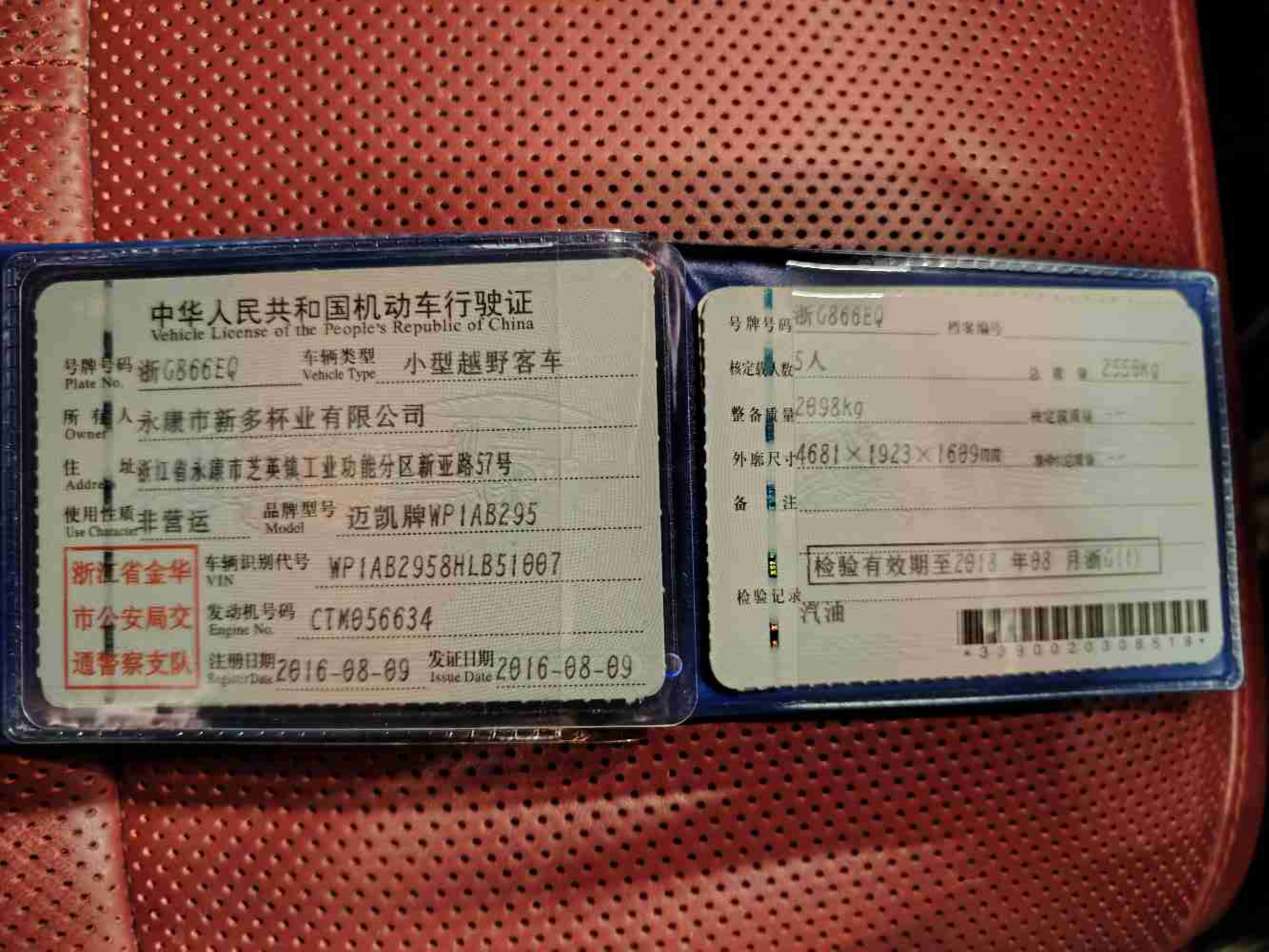 中华人民共和国机动车行驶证
Vehicle License of the People's Republic of China
号牌号码 浙G866EQ 车辆类型 小型越野客车
Plate No. Vehicle Type
所有人 永康市新多杯业有限公司
Owner
住址 浙江省永康市芝英镇工业功能分区新亚路57号
Address
使用性质 非营运 品牌型号 迈凯牌WP1AB295
Use Character Model
浙江省金华
市公安局交
通警察支队
车辆识别代号 WP1AB2958HLB51007
VIN
发动机号码 CTM056634
Engine No.
注册日期 2016-08-09 发证日期 2016-08-09
Register Date Issue Date
号牌号码 浙G866EQ 档案编号
核定载人数 5人 总质量 2550kg
整备质量 2098kg 核定载质量 --
外廓尺寸 4681×1923×1609mm --
备注
检验有效期至2018 年08 月浙G(1)
检验记录
汽油
*3390020308518*